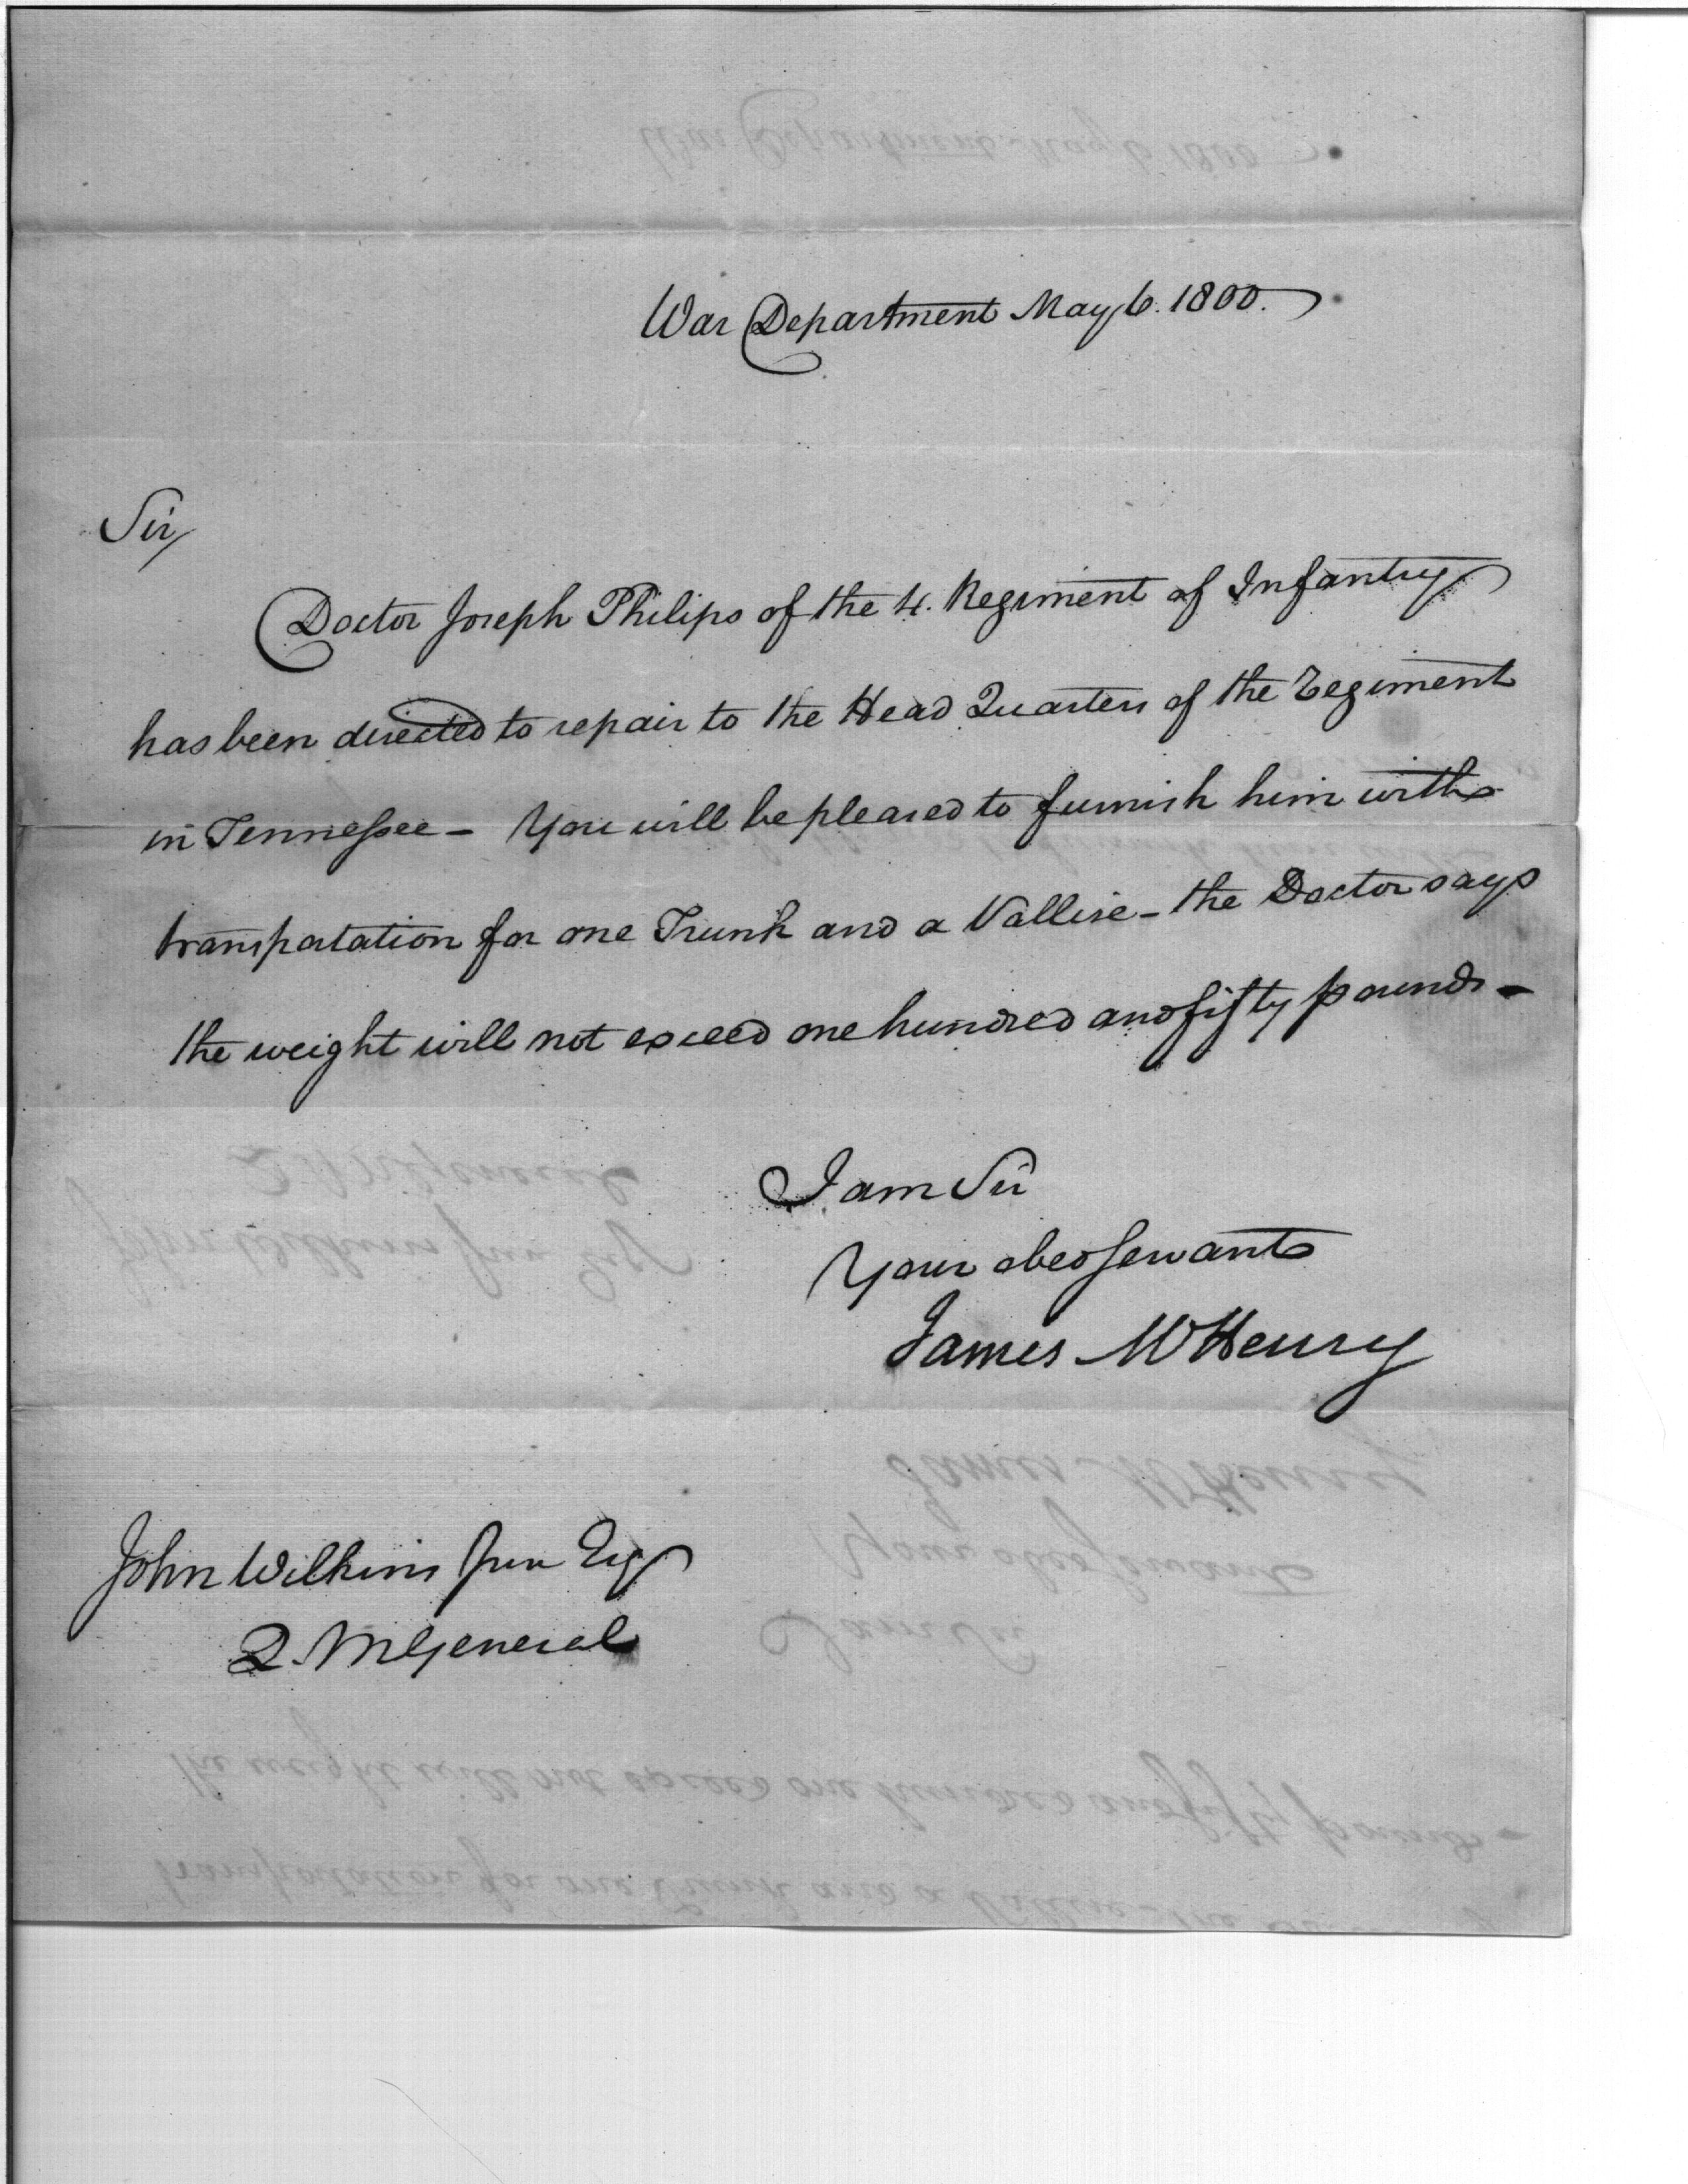 War Department May 6. 1800.
Sir,
Doctor Joseph Philips of the 4. Regiment of Infantry
has been directed to repair to the Head Quarters of the Regiment
in Tennessee – You will be pleased to furnish him with
transportation for one Trunk and a Vallise – the Doctor says
the weight will not exceed one hundred and fifty pounds –
I am Sir
Your obed servant
James McHenry
John Wilkins Jun Esq
Q. M General